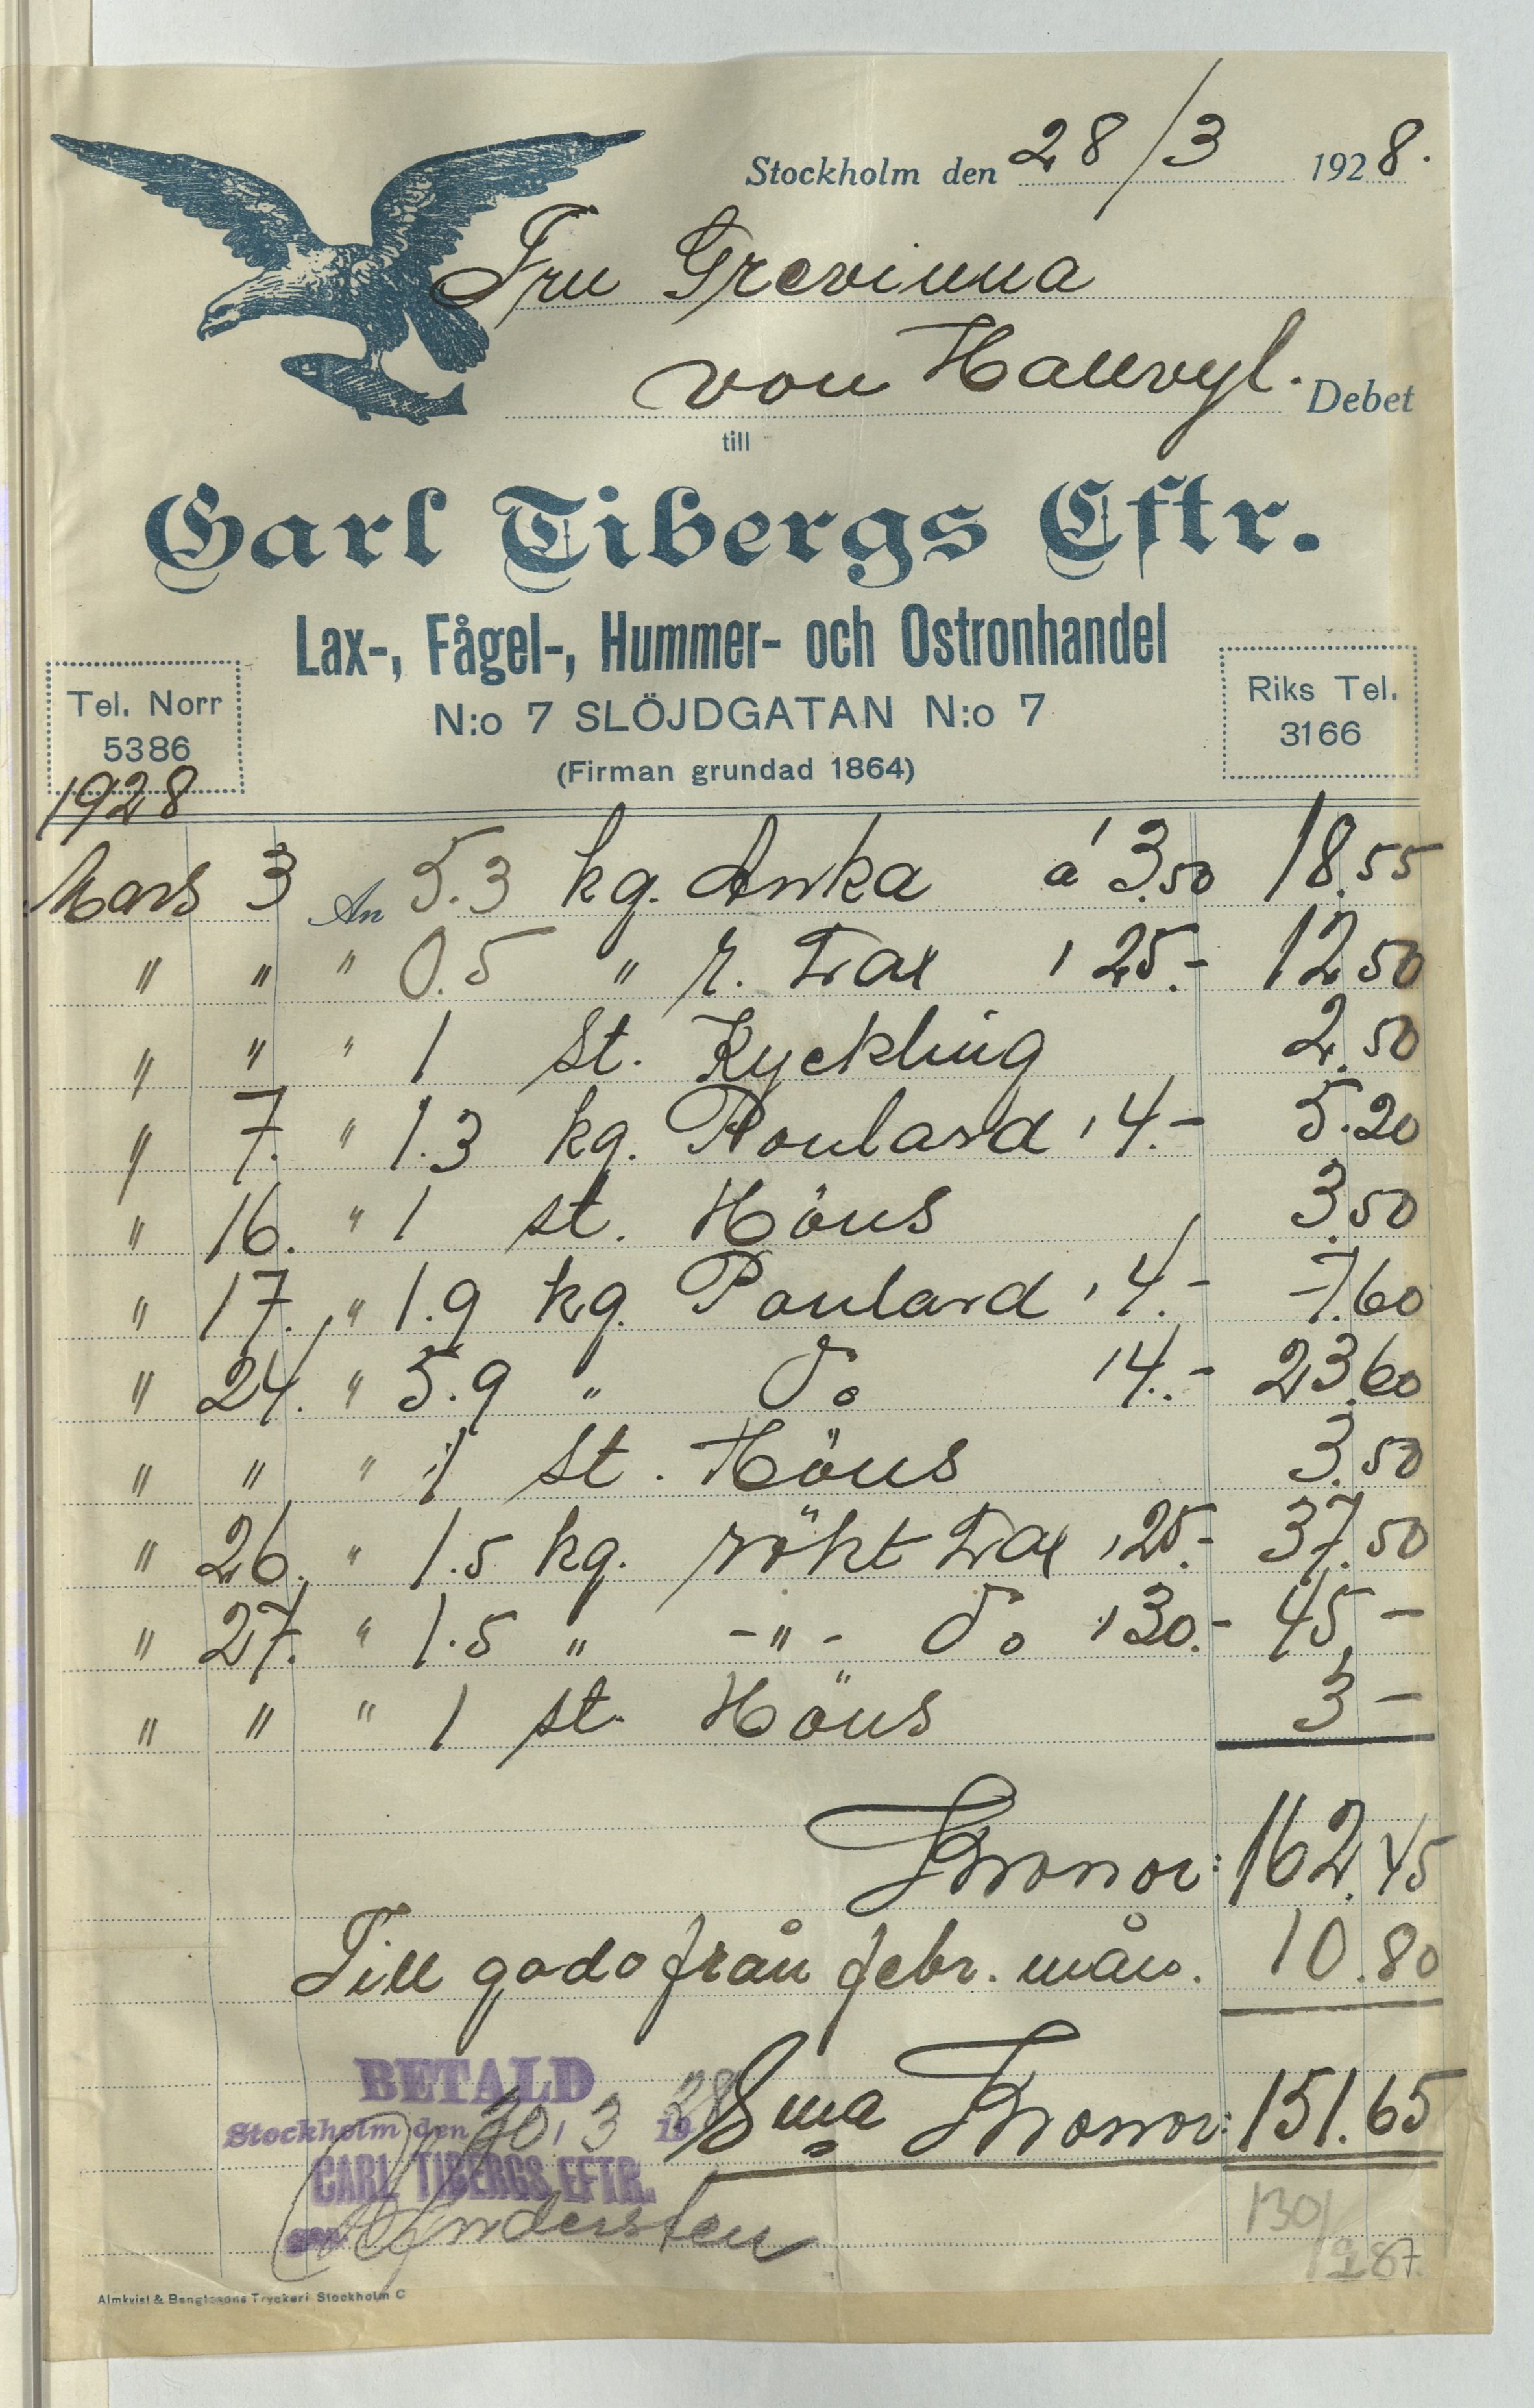 Stockholm den 28/3 1928.
Fru Grevinna
von Hallwyl. Debet
till
Carl Tibergs Eftr.
Lax-, Fågel-, Hummer- och Ostronhandel
Tel. Norr
5386
N:o 7 SLÖJDGATAN N:o 7
(Firman grundad 1864)
Riks Tel.
3166
1928
Mars 3 An 5.3 kg. Anka à 3.50 18.55
" " " 0.5 " r. Lax , 25.- 12.50
" " " 1 st. Kyckling 2.50
" 7. " 1.3 kg. Poulard , 4.- 5.20
" 16. " 1 st. Höns 3.50
" 17. " 1.9 kg. Poulard , 4.- 7.60
" 24. " 5.9 " do , 4.- 23.60
" " " 1 st. Höns 3.50
" 26. " 1.5 kg. rökt Lax , 25.- 37.50
" 27. " 1.5 " -"- do , 30.- 45.-
" " " 1 st. Höns 3 -
Kronor: 162.45
Till godo från febr. mån. 10.80
Sma Kronor: 151.65
BETALD
Stockholm den 30/3 1928
CARL TIBERGS EFTR.
Andersten
130/
1987.
Almkvist & Bengtssons Tryckeri Stockholm C